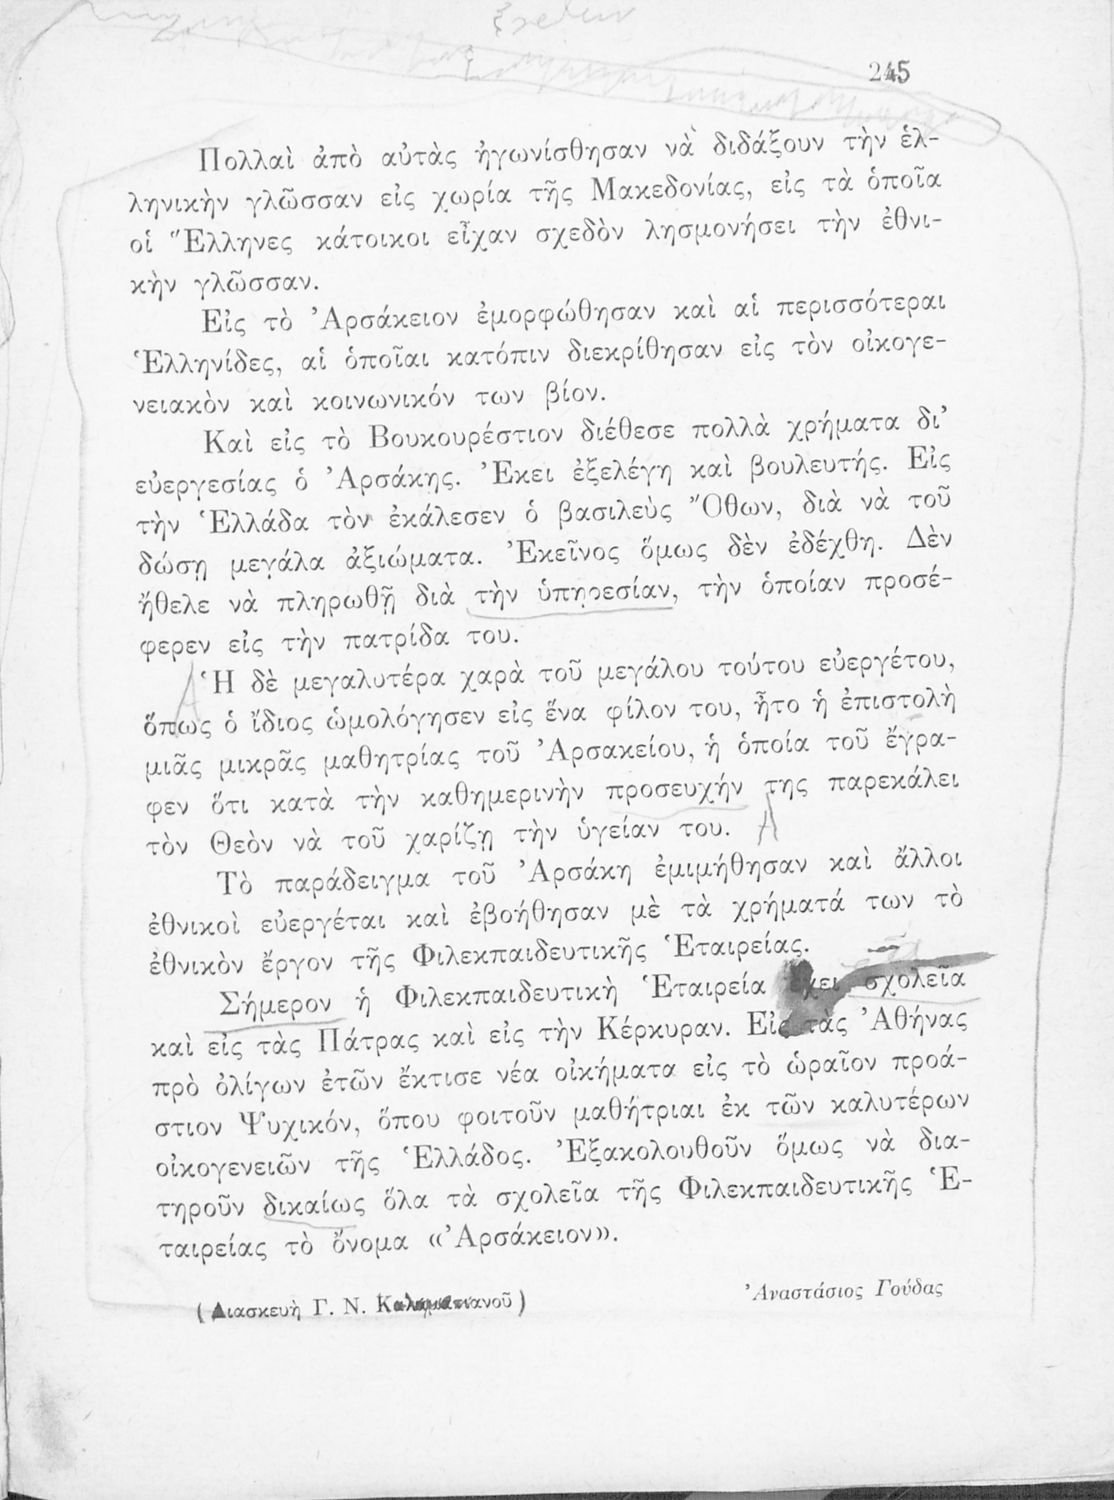 245
Πολλαὶ ἀπὸ αὐτὰς ἠγωνίσθησαν νὰ διδάξουν τὴν ἑλ-
ληνικὴν γλῶσσαν εἰς χωρία τῆς Μακεδονίας, εἰς τὰ ὁποῖα
οἱ Ἕλληνες κάτοικοι εἶχαν σχεδὸν λησμονήσει τὴν ἐθνι-
κὴν γλῶσσαν.
Εἰς τὸ Ἀρσάκειον ἐμορφώθησαν καὶ αἱ περισσότεραι
Ἑλληνίδες, αἱ ὁποῖαι κατόπιν διεκρίθησαν εἰς τὸν οἰκογε-
νειακὸν καὶ κοινωνικόν των βίον.
Καὶ εἰς τὸ Βουκουρέστιον διέθεσε πολλὰ χρήματα δι’
εὐεργεσίας ὁ Ἀρσάκης. Ἐκεῖ ἐξελέγη καὶ βουλευτής. Εἰς
τὴν Ἑλλάδα τὸν ἐκάλεσεν ὁ βασιλεὺς Ὄθων, διὰ νὰ τοῦ
δώσῃ μεγάλα ἀξιώματα. Ἐκεῖνος ὅμως δὲν ἐδέχθη. Δὲν
ἤθελε νὰ πληρωθῇ διὰ τὴν ὑπηρεσίαν, τὴν ὁποίαν προσέ-
φερεν εἰς τὴν πατρίδα του.
Ἡ δὲ μεγαλυτέρα χαρὰ τοῦ μεγάλου τούτου εὐεργέτου,
ὅπως ὁ ἴδιος ὡμολόγησεν εἰς ἕνα φίλον του, ἦτο ἡ ἐπιστολὴ
μιᾶς μικρᾶς μαθητρίας τοῦ Ἀρσακείου, ἡ ὁποία τοῦ ἔγρα-
φεν ὅτι κατὰ τὴν καθημερινὴν προσευχήν της παρεκάλει
τὸν Θεὸν νὰ τοῦ χαρίζῃ τὴν ὑγείαν του.
Τὸ παράδειγμα τοῦ Ἀρσάκη ἐμιμήθησαν καὶ ἄλλοι
ἐθνικοὶ εὐεργέται καὶ ἐβοήθησαν μὲ τὰ χρήματά των τὸ
ἐθνικὸν ἔργον τῆς Φιλεκπαιδευτικῆς Ἑταιρείας.
Σήμερον ἡ Φιλεκπαιδευτικὴ Ἑταιρεία ἔχει σχολεῖα
καὶ εἰς τὰς Πάτρας καὶ εἰς τὴν Κέρκυραν. Εἰς τὰς Ἀθήνας
πρὸ ὀλίγων ἐτῶν ἔκτισε νέα οἰκήματα εἰς τὸ ὡραῖον προά-
στιον Ψυχικόν, ὅπου φοιτοῦν μαθήτριαι ἐκ τῶν καλυτέρων
οἰκογενειῶν τῆς Ἑλλάδος. Ἐξακολουθοῦν ὅμως νὰ δια-
τηροῦν δικαίως ὅλα τὰ σχολεῖα τῆς Φιλεκπαιδευτικῆς Ἑ-
ταιρείας τὸ ὄνομα «Ἀρσάκειον».
Ἀναστάσιος Γούδας
(Διασκευὴ Γ. Ν.